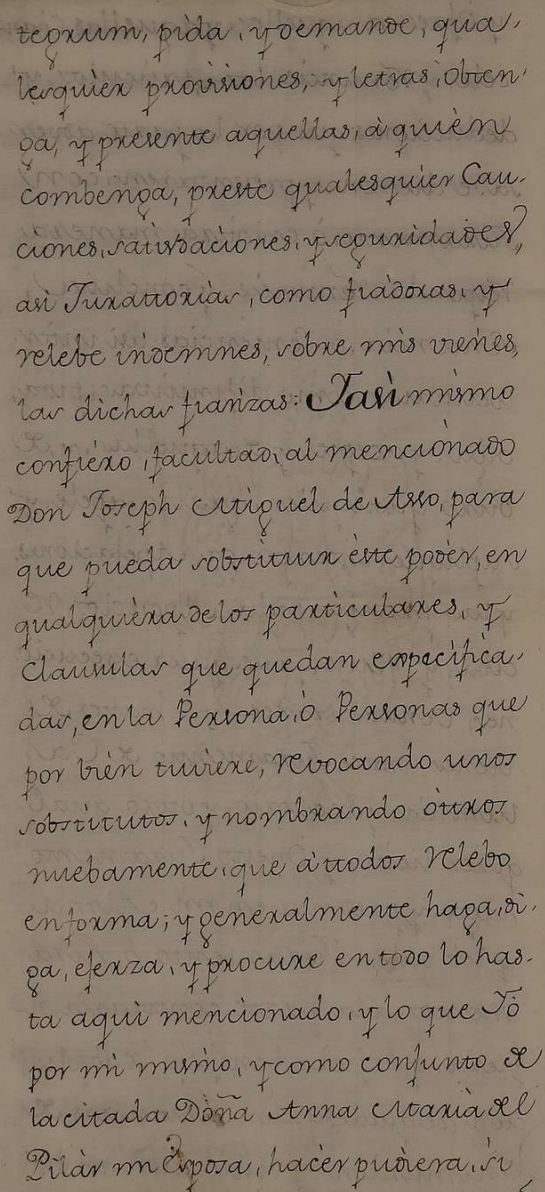 teorum, pida, y demande, qua-
lesquier provisiones, y letras, obten-
ga, y presente aquellas, à quièn
combenga, preste qualesquier Cau-
ciones, satisdaciones, y seguridades,
asi Juratoriàs, como fiàdoras, y
relebe indemnes, sobre mis vienes,
las dichas fianzas: Yasì mismo
confièro, facultad, al mencionado
Don Joseph Miguèl de Asso, para
que pueda sobstituir èste podèr, en
qualquièra de los particulares, y
Clausulas que quedan especifica-
das, en la Persona, ò Personas que
por bièn tuviere, revocando unos
sobstitutos, y nombrando òttros
nuebamente, que à ttodos relebo
en forma; y generalmente haga, di-
ga, ejerza, y procure en todo lo has-
ta aqui mencionado, y lo que Yò
por mì mismo, y como conjunto de
la citada Doña Anna Marià del
Pilàr mi Esposa, hacèr pudiera, si